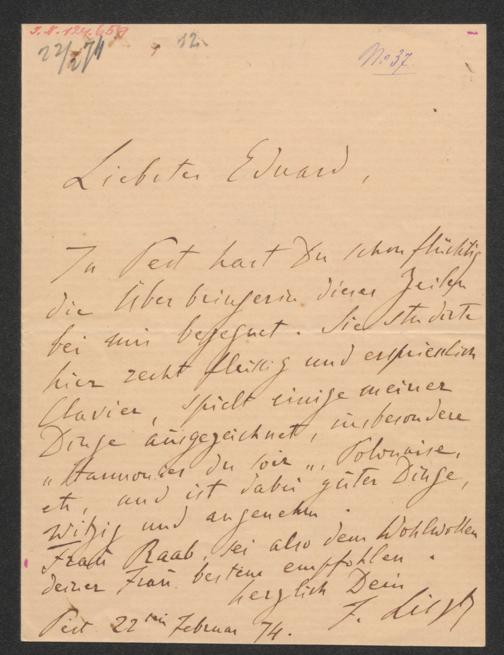 I.N. 124.658
22/2 74
12.
No 37
Liebster Eduard,
In Pest hast Du schon flüchtig
die Überbringerin dieser Zeilen
bei mir begegnet. Sie studirte
hier recht fleißig und ersprießlich
Clavier, spielt einige meiner
Dinge ausgezeichnet, insbesondere
"Harmonies du soir", Polonaise,
etc, und ist dabei guter Dinge,
witzig und angenehm.
Frau Raab, sei also dem Wohlwollen
deiner Frau bestens empfohlen.
herzlich Dein
F. Liszt
Pest 22ten Februar 74.